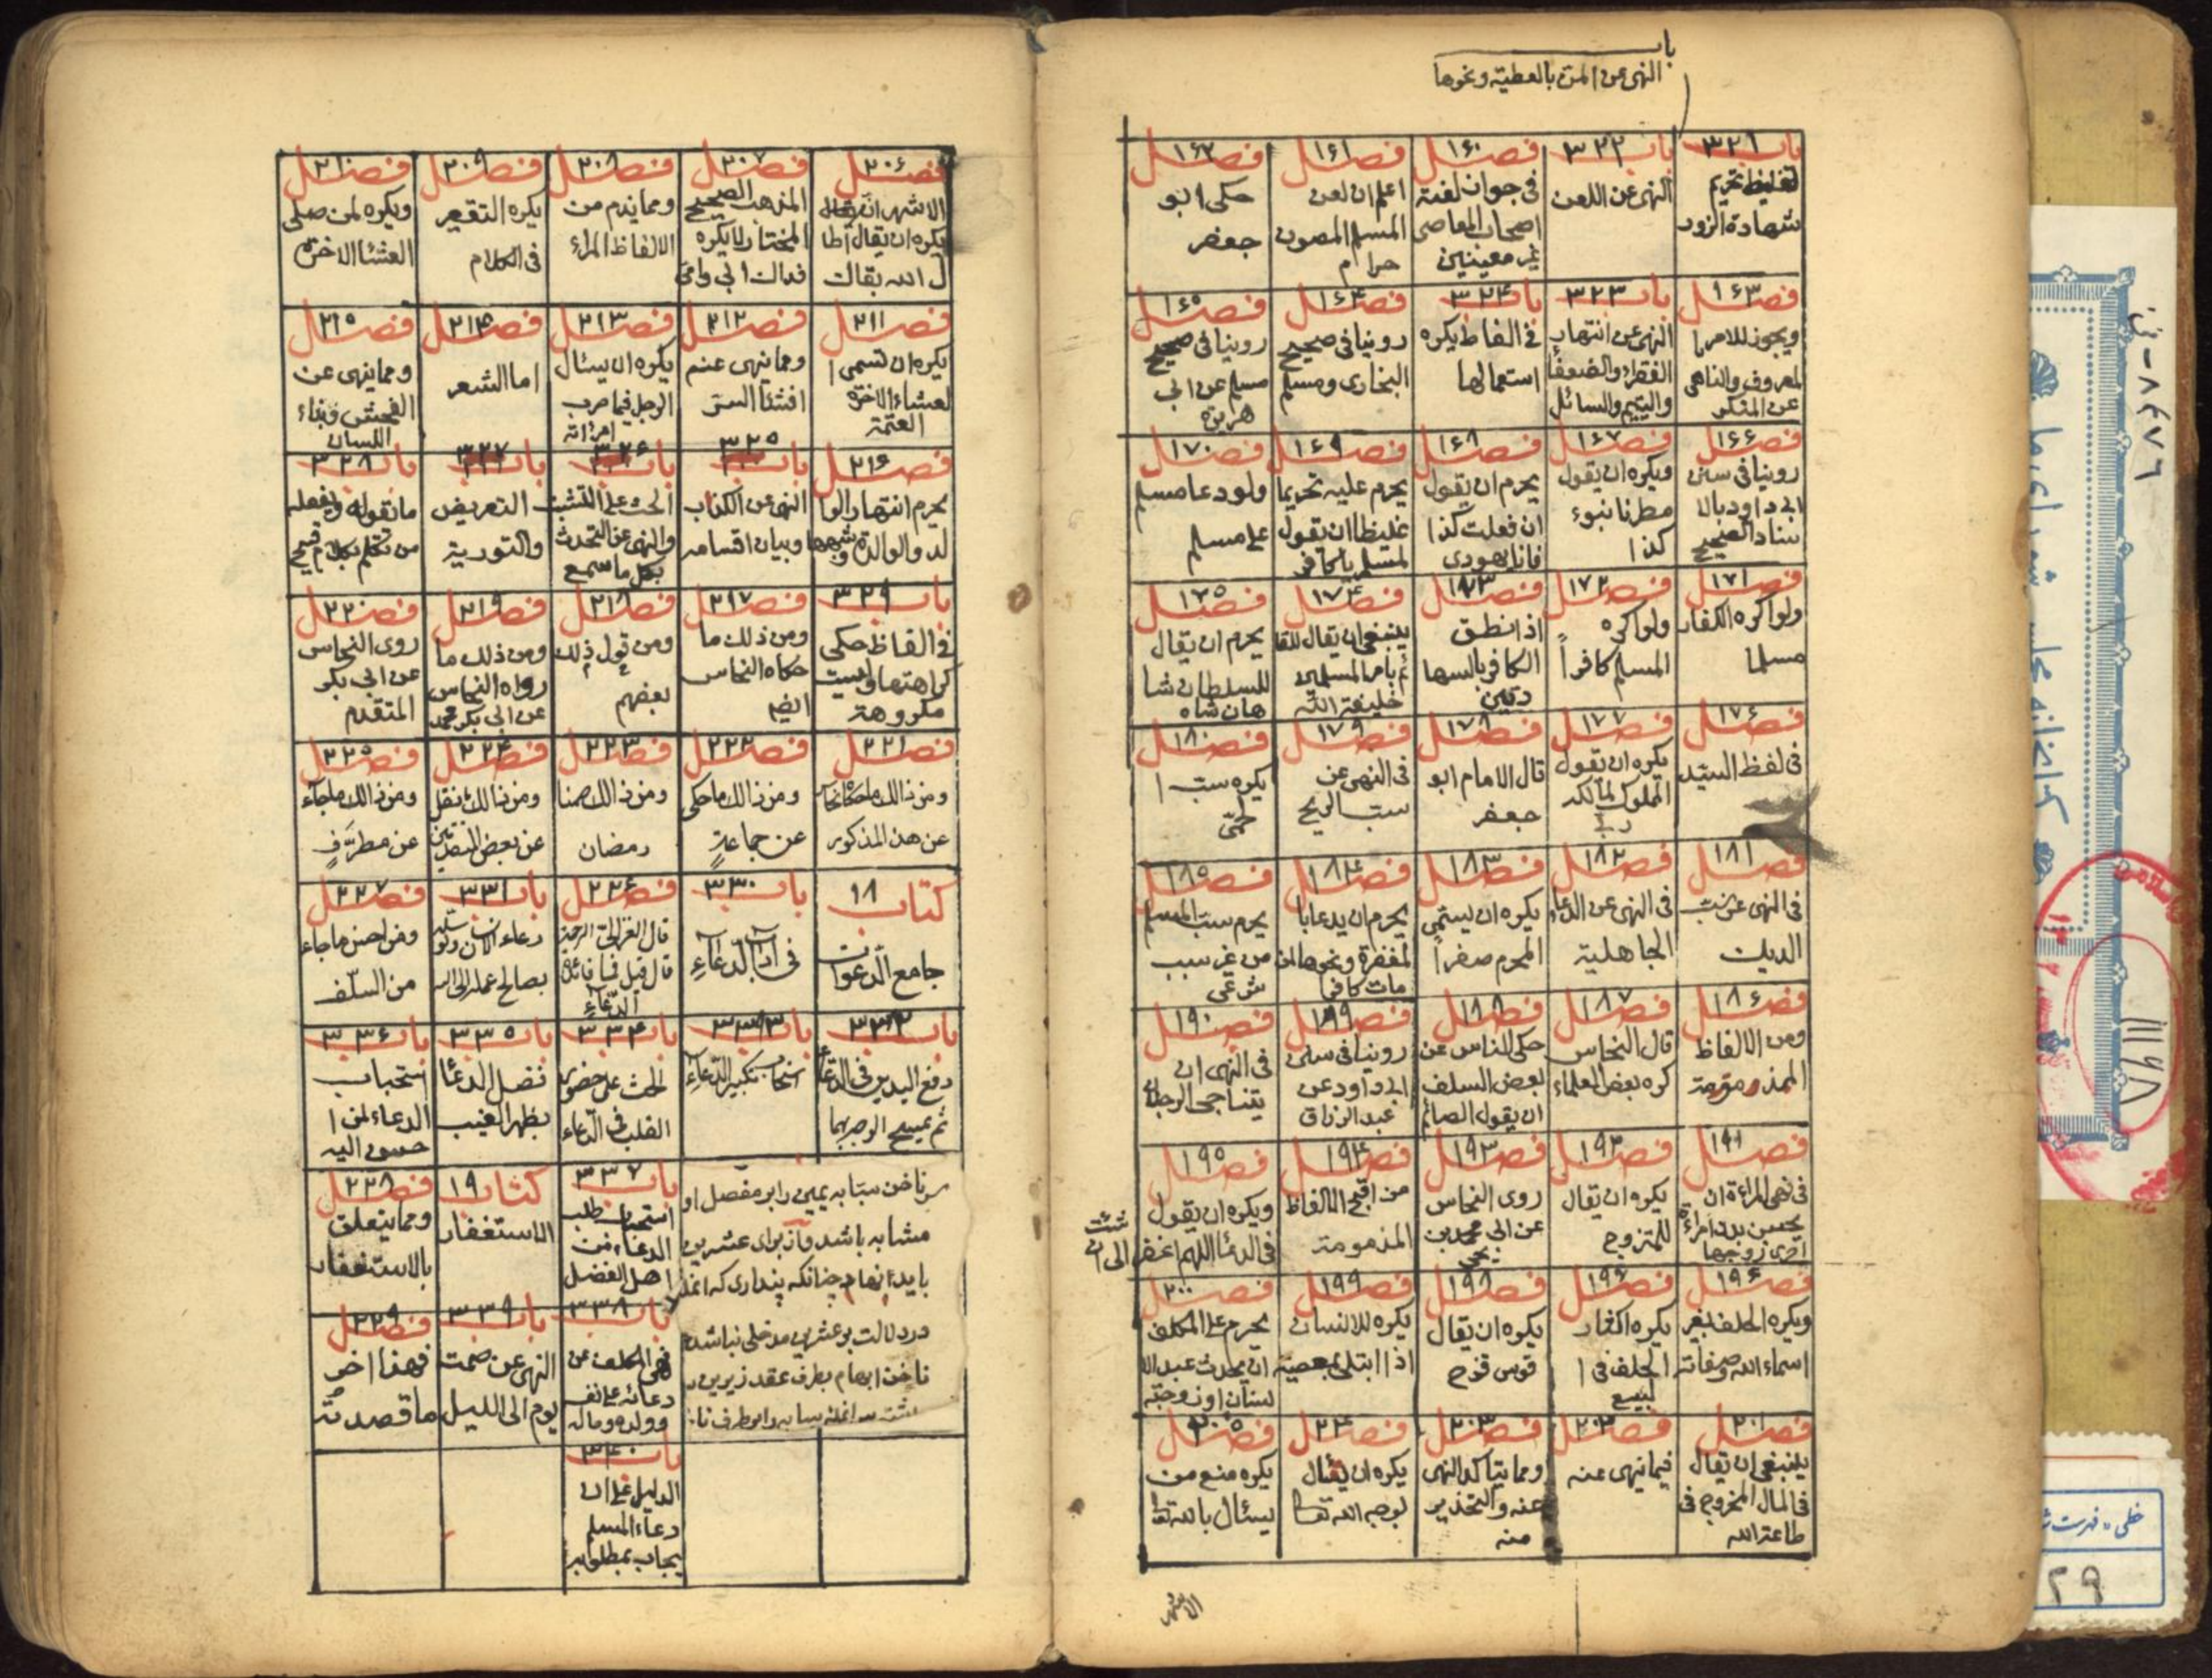 باب
النهى عن المن بالعطية ونحوها
باب ٣٢١
تغليظ تحريم
شهادة الزور
باب ٣٢٢
النهى عن اللعن
فصل ١٦٠
فى جواز لعنة
اصحاب المعاصى
غير معينين
فصل ١٦١
اعلم ان لعن
المسلم المصون
حرام
فصل ١٦٢
حكى ابو
جعفر
فصل ١٦٣
ويجوز للامر با
لمعروف والناهى
عن المنكر
باب ٣٢٣
النهى عن انتهار
الفقراء والضعفاء
واليتيم والسائل
باب ٣٢٤
فى الفاظ يكره
استعمالها
فصل ١٦٤
روينا فى صحيح
البخارى ومسلم
فصل ١٦٥
روينا فى صحيح
مسلم عن ابى
هريرة
فصل ١٦٦
روينا فى سنن
ابى داود بالا
سناد الصحيح
فصل ١٦٧
ويكره ان يقول
مطرنا بنوء
كذا
فصل ١٦٨
يحرم ان يقول
ان فعلت كذا
فانا يهودى
فصل ١٦٩
يحرم عليه تحريما
غليظا ان يقول
لمسلم يا كافر
فصل ١٧٠
ولو دعا مسلم
على مسلم
فصل ١٧١
ولو اكره الكفار
مسلما
فصل ١٧٢
ولو اكره
المسلم كافراً
فصل ١٧٣
اذا نطق
الكافر بالشها
دتين
فصل ١٧٤
ينبغى ان يقال للقا
ئم بامر المسلمين
خليفة الله
فصل ١٧٥
يحرم ان يقال
للسلطان شا
هان شاه
فصل ١٧٦
فى لفظ السيّد
فصل ١٧٧
يكره ان يقول
المملوك لمالكه
ربى
فصل ١٧٨
قال الامام ابو
جعفر
فصل ١٧٩
فى النهى عن
سب الريح
فصل ١٨٠
يكره سب ا
لحمّى
فصل ١٨١
فى النهى عن سب
الديك
فصل ١٨٢
فى النهى عن الدعاء
الجاهلية
فصل ١٨٣
يكره ان يسمى
المحرم صفراً
فصل ١٨٤
يحرم ان يدعا با
لمغفرة ونحوها لمن
مات كافرا
فصل ١٨٥
يحرم سب المسلم
من غير سبب
شرعى
فصل ١٨٦
ومن الالفاظ
المذمومة
فصل ١٨٧
قال النحاس
كره بعض العلماء
فصل ١٨٨
حكى النحاس عن
بعض السلف
ان يقول الصائم
فصل ١٨٩
روينا فى سنن
ابى داود عن
عبد الرزاق
فصل ١٩٠
فى النهى ان
يتناجى الرجلان
فصل ١٩١
فى نهى المراءة ان
تخبر بدن امراءة
اخرى زوجها
فصل ١٩٢
يكره ان يقال
للمتزوج
فصل ١٩٣
روى النحاس
عن ابى محمد بن
يحيى
فصل ١٩٤
من اقبح الالفاظ
المذمومة
فصل ١٩٥
ويكره ان يقول
فى الدعا اللهم اغفر لى ان
شئت
فصل ١٩٦
ويكره الحلف بغير
اسماء الله وصفاته
فصل ١٩٧
يكره اكثار
الحلف فى ا
لبيع
فصل ١٩٨
يكره ان يقال
قوس قزح
فصل ١٩٩
يكره للانسان
اذا ابتلى بمعصية
فصل ٢٠٠
يحرم على المكلف
ان يحدث عبد الا
نسان او زوجته
فصل ٢٠١
ينبغى ان يقال
فى المال المخرج فى
طاعة الله
فصل ٢٠٢
فيما نهى عنه
فصل ٢٠٣
ومما يتاكد النهى
عنه والتحذير
منه
فصل
يكره ان يسأل
بوجه الله تعا
فصل ٢٠٥
يكره منع من
يسئال بالله تعا
فصل ٢٠٦
الاشهر انه
يكره ان يقال اطا
ل الله بقاك
فصل ٢٠٧
المذهب الصحيح
المختار لا يكره
فداك ابى وامى
فصل ٢٠٨
ومما يذم من
الالفاظ المراء
فصل ٢٠٩
يكره التقعير
فى الكلام
فصل ٢١٠
ويكره لمن صلى
العشا الاخرة
فصل ٢١١
يكره ان تسمى ا
لعشاء الاخرة
العتمة
فصل ٢١٢
ومما ينهى عنه
افشاء السر
فصل ٢١٣
يكره ان يسئال
الرجل فيما ضرب
امراته
فصل ٢١٤
اما الشعر
فصل ٢١٥
ومما ينهى عن
الفحش وبذاء
اللسان
فصل ٢١٦
يحرم انتهار الوا
لد والوالدة وشبهها
باب ٣٢٥
النهى عن الكذب
وبيان اقسامه
باب ٣٢٦
الحث على التثبت
والنهى عن التحدث
بكل ما سمع
باب ٣٢٧
التعريض
والتورية
باب ٣٢٨
ما نقوله ويفعله
من تكلم بكلام قبيح
باب ٣٢٩
فى الفاظ حكى
كراهتها وليست
مكروهة
فصل ٢١٧
ومن ذلك ما
حكاه النحاس
ايضا
فصل ٢١٨
ومن قول ذلك
بعضهم
فصل ٢١٩
ومن ذلك ما
رواه النحاس
عن ابى بكر محمد
فصل ٢٢٠
روى النحاس
عن ابى بكر
المتقدم
فصل ٢٢١
ومن ذالك ما حكاه النحاس
عن هذا المذكور
فصل ٢٢٢
ومن ذالك ما حكى
عن جماعةٍ
فصل ٢٢٣
ومن ذالك صمنا
رمضان
فصل ٢٢٤
ومن ذالك نقل
عن بعض المتقدمين
فصل ٢٢٥
ومن ذالك ما جآء
عن مطرّفٍ
كتاب ١٨
جامع الدّعوات
باب ٣٣٠
فى اداب الدّعآءِ
فصل ٢٢٦
قال الغزالى
قال قيل فما فائدة
الدّعآءِ
باب ٣٣١
دعاء الانسان وتوسله
بصالح عمله الى الله
فصل ٢٢٧
ومن احسن ما جاء
من السلف
باب ٣٣٢
رفع اليدين فى الدعاء
ثم يمسح الوجه بهما
باب ٣٣٣
استحباب تكبير الدّعآءِ
باب ٣٣٤
الحث على حضور
القلب فى الدّعاء
باب ٣٣٥
فضل الدعا
بظهر الغيب
باب ٣٣٦
استحباب
الدعاء لمن ا
حسن اليه
سر ناخن سبّابه يمين را بر مفصل او
مشابه باشد و از براى عشرين
بايد ابهام چنانكه پندارى كه انمله
در دلالت بر عشرين مدخلى نباشد
ناخن ابهام بطرف عقد زيرين
باب ٣٣٧
استحباب طلب
الدعاء من
اهل الفضل
كتاب ١٩
الاستغفار
فصل ٢٢٨
ومما يتعلق
بالاستغفار
باب ٣٣٨
نهى المكلف عن
دعائه على نفسه
وولده وماله
باب ٣٣٩
النهى عن صمت
يوم الى الليل
فصل ٢٢٩
فهذا اخر
ما قصدتُه
باب ٣٤٠
الدليل على ان
دعاء المسلم
يجاب بمطلوبه
١١١٩٨
خطى - فهرست
٢٩